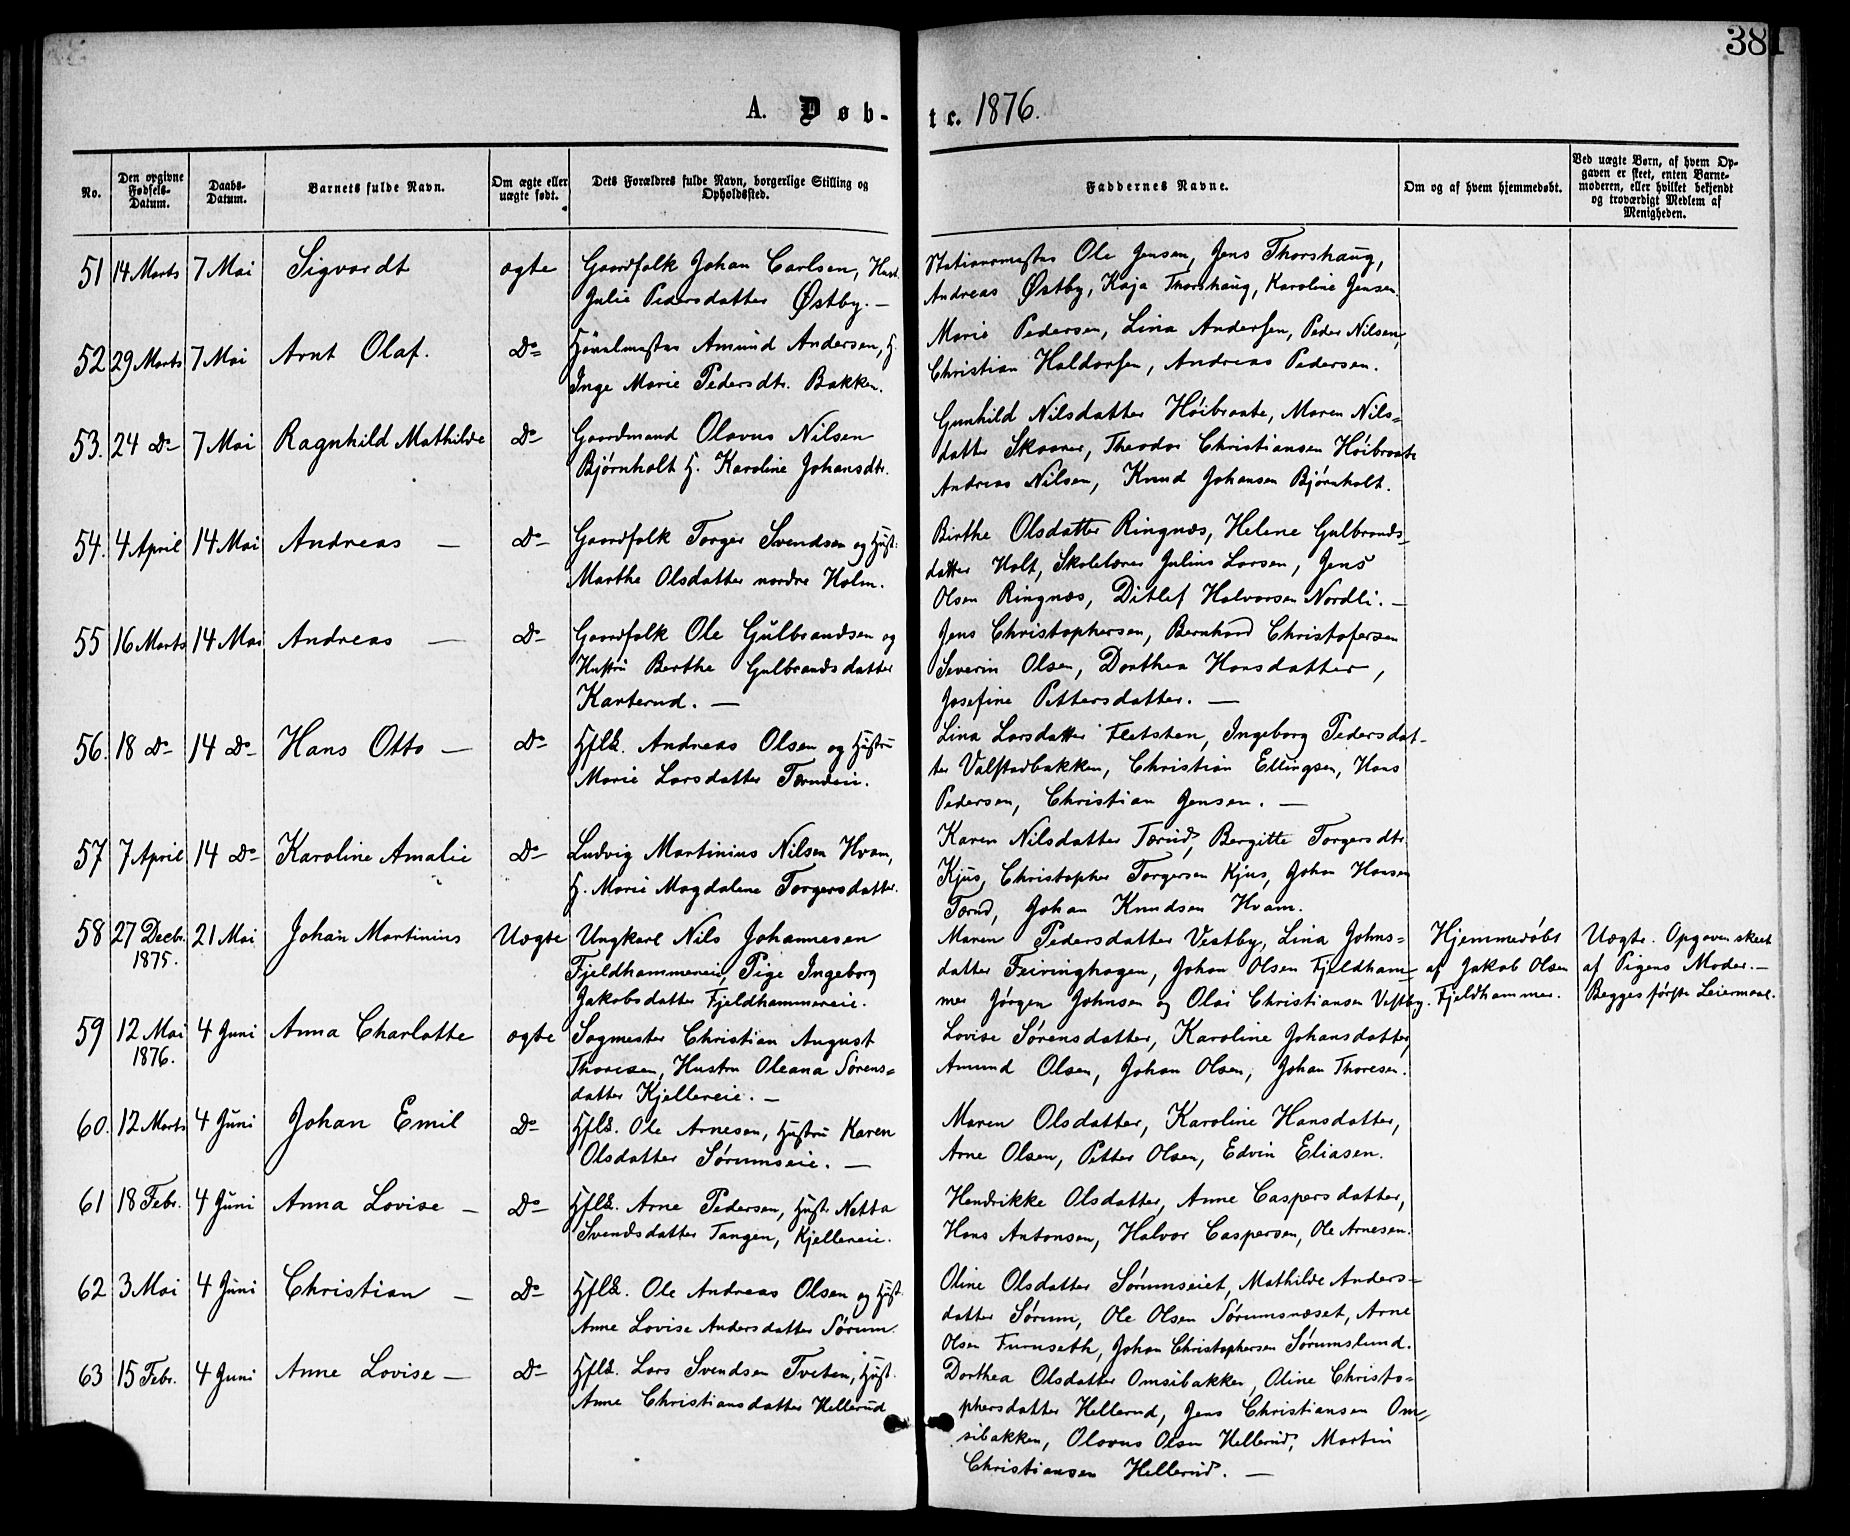 381
A. Døb-
te. 1876.
No.
Den opgivne Fødsels-Datum.
Daabs-Datum.
Barnets fulde Navn.
Om ægte eller uægte født.
Dets Forældres fulde Navn, borgerlige Stilling og Opholdssted.
Faddernes Navne.
Om og af hvem hjemmedøbt.
Ved uægte Børn, af hvem Opgaven er skeet, enten Barnemoderen, eller hvilket bekjendt og troværdigt Medlem af Menigheden.
51 14 Marts 7 Mai Sigvardt ægte Gaardfolk Johan Carlsen, Hust.
Julie Pedersdatter Østby. —
Stationsmester Ole Jensen, Jens Thorshaug,
Andreas Østby, Kaja Thorshaug, Karoline Jensen.
52 29 Marts 7 Mai Arnt Olaf. Do Amund Andersen, H.
Inge Marie Pedersdtr. Bakken.
Marie Pedersen, Lina Andersen, Peder Nilsen,
Christian Haldorsen, Andreas Pedersen.
53. 24 Do 7 Mai Ragnhild Mathilde Do Gaardmand Olavus Nilsen
Bjørnholt H. Karoline Johansdtr.
Gunhild Nilsdatter Høibraate, Maren Nils=
datter Skaarer, Theodor Christiansen Høibraate
Andreas Nilsen, Knud Johansen Bjørnholt.
54. 4 April 14 Mai Andreas — Do Gaardfolk Torger Svendsen og Hust:
Marthe Olsdatter nordre Holm.
Birthe Olsdatter Ringnæs, Helene Gulbrands=
datter Holt, Skolelærer Julius Larsen, Jens
Olsen Ringnæs, Ditlef Halvorsen Nordli. —
55 16 Marts 14 Mai Andreas — Do Gaardfolk Ole Gulbrandsen og
Hustru Berthe Gulbrandsdatter
Karterud. —
Jens Christophersen, Bernhard Christofersen
Severin Olsen, Dorthea Hansdatter,
Josefine Pettersdatter. —
56. 18 Do 14 Do Hans Otto — Do Hflk. Andreas Olsen og Hustru
Marie Larsdatter Tærudeie.
Lina Larsdatter Fletsten, Ingeborg Pedersdat-
ter Valstadbakken, Christian Ellingsen, Hans
Pedersen, Christian Jensen. —
57 7 April 14 Do Karoline Amalie Do Ludvig Martinius Nilsen Hvam,
H. Marie Magdalene Torgersdatter.
Karen Nilsdatter Tærud, Bergitte Torgersdtr
Kjus, Christopher Torgersen Kjus, Johan Hansen
Tærud, Johan Knudsen Hvam.
58 27 Decbr. 1875. 21 Mai Johan Martinius Uægte Ungkarl Nils Johannesen
Fjeldhammereie, Pige Ingeborg
Jakobsdatter Fjeldhammereie.
Maren Pedersdatter Vestby, Lina Johns=
datter Feiringhagen, Johan Olsen Fjeldham=
mer Jørgen Johnsen og Olai Christiansen Vestby.
Hjemmedøbt
af Jakob Olsen
Fjeldhammer.
Uægte. Opgaven skeet
af Pigens Moder. —
Begges første Leiermaal.
59 12 Mai 1876. 4 Juni Anna Charlotte ægte Sagmester Christian August
Thoresen, Hustru Oleana Sørens=
datter Kjellereie. —
Lovise Sørensdatter, Karoline Johansdatter,
Amund Olsen, Johan Olsen, Johan Thoresen.
60. 12 Marts 4 Juni Johan Emil Do Hflk. Ole Arnesen, Hustru Karen
Olsdatter Sørumseie. —
Maren Olsdatter, Karoline Hansdatter,
Arne Olsen, Petter Olsen, Edvin Eliasen.
61 18 Febr. 4 Juni Anna Lovise — Do Hflk. Arne Pedersen, Hust. Netta
Svendsdatter Tangen, Kjellereie.
Hendrikke Olsdatter, Anne Caspersdatter,
Hans Antonsen, Halvor Caspersen, Ole Arnesen.
62 3 Mai 4 Juni Christian — Do Hflk. Ole Andreas Olsen og Hust.
Anne Lovise Andersdatter Sørum.
Oline Olsdatter Sørumseiet, Mathilde Anders=
datter Sørum, Ole Olsen Sørumsnæset, Arne
Olsen Furuseth, Johan Christophersen Sørumslund.
63 15 Febr. 4 Juni Anne Lovise — Do Hflk. Lars Svendsen Tveten, Hust.
Anne Christiansdatter Hellerud
Dorthea Olsdatter Omsibakken, Oline Christo=
phersdatter Hellerud, Jens Christiansen Om=
sibakken, Olavus Olsen Hellerud, Martin
Christiansen Hellerud. —